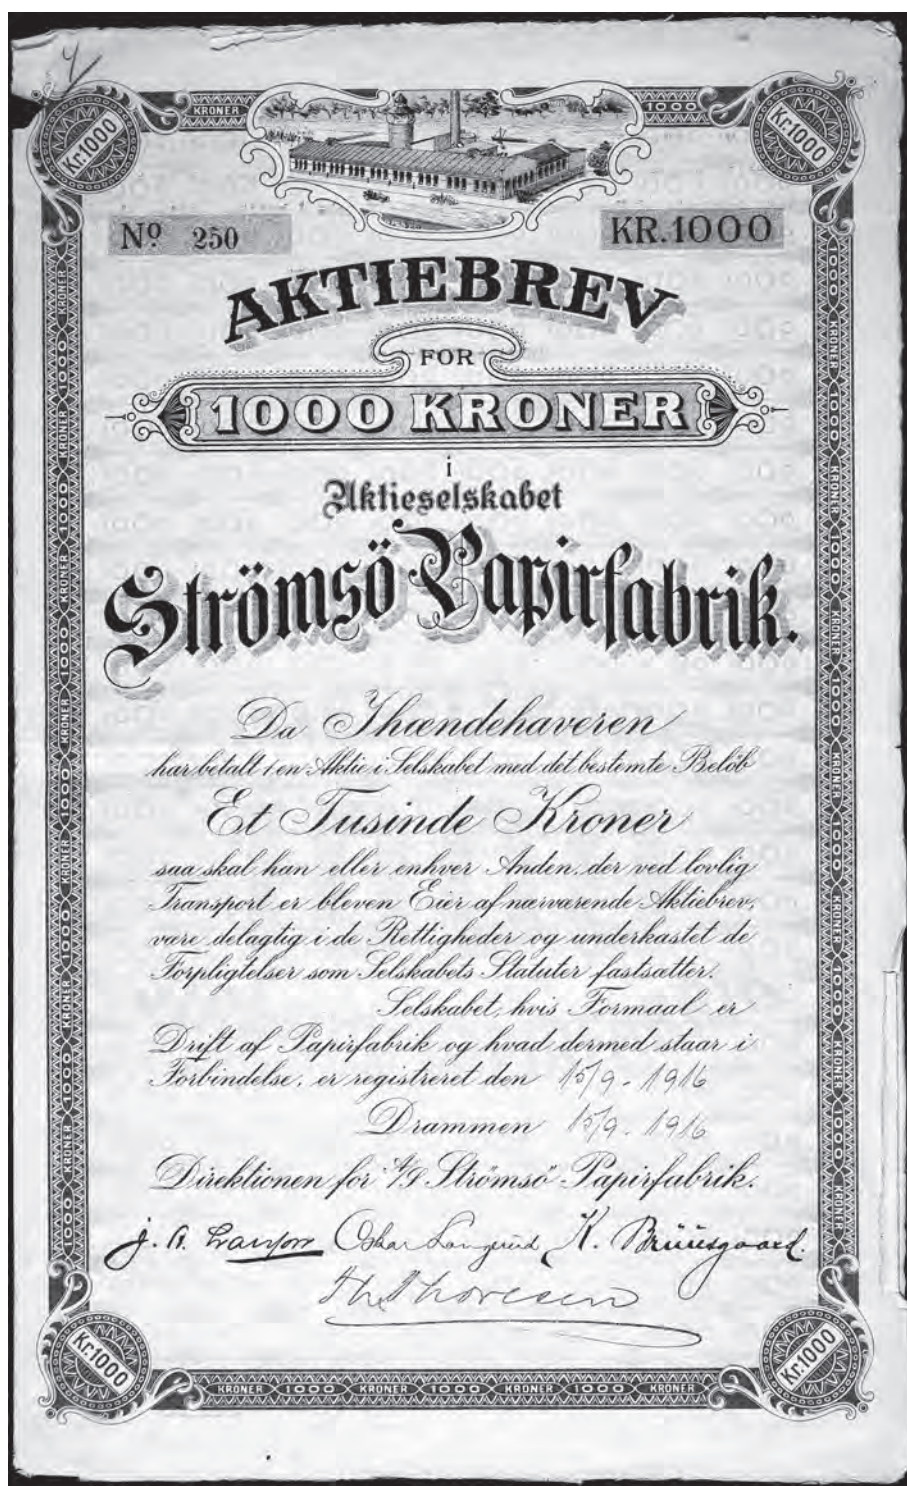 KRONER
1000
Kr.1000
Kr.1000
Nº 250
KR.1000
AKTIEBREV
FOR
1000 KRONER
i
Aktieselskabet
Strömsö Papirfabrik.
Da Ihændehaveren
har betalt 1 en Aktie i Selskabet med det bestemte Belöb
Et Tusinde Kroner
saa skal han eller enhver Anden, der ved lovlig
Transport er bleven Eier af nærværende Aktiebrev,
være delagtig i de Rettigheder og underkastet de
Forpligtelser som Selskabets Statuter fastsætter.
Selskabet, hvis Formaal er
Drift af Papirfabrik og hvad dermed staar i
Forbindelse, er registreret den 15/9 - 1916
Drammen 15/9 - 1916
Direktionen for A/S Strömsö Papirfabrik.
J. A. Oskar K. Brüüsgaard.
Th. Thoresen
Kr.1000
Kr.1000
KRONER 1000 KRONER 1000 KRONER 1000 KRONER